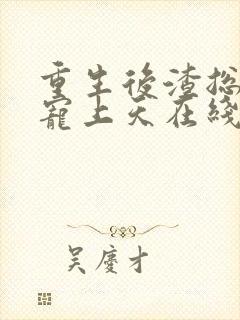 重生後渣总
寵上天在綫
吴慶才